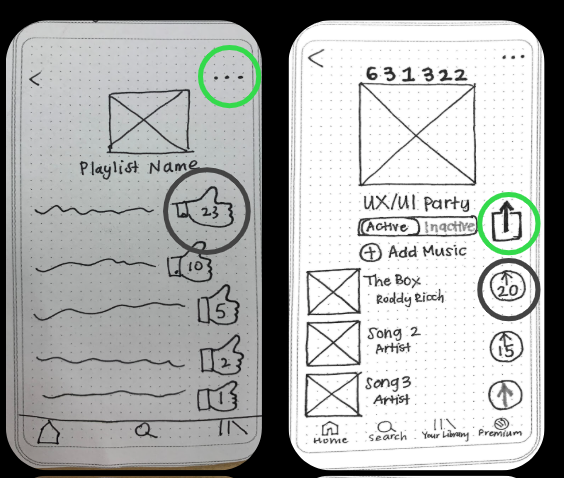 Playlist Name
23
10
5
2
1
631322
UX/UI Party
Active Inactive
Add Music
The Box
Roddy Ricch
20
Song 2
Artist
15
Song3
Artist
Home Search Your Library Premium